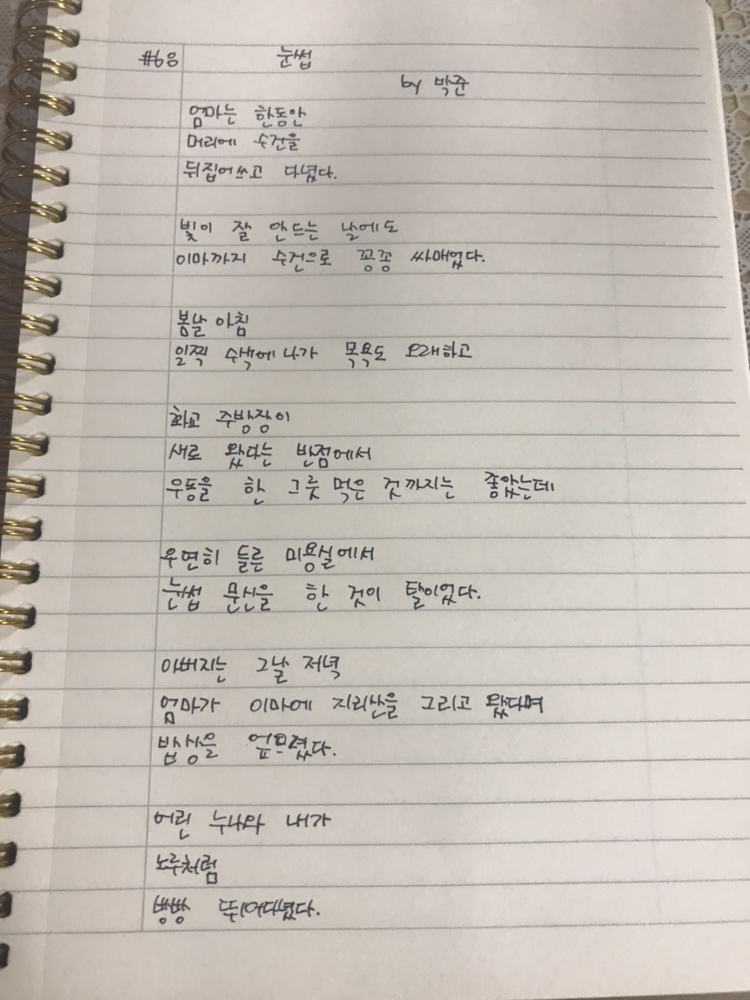 #68 눈썹
by 박준
엄마는 한동안
머리에 수건을
뒤집어쓰고 다녔다.
빛이 잘 안 드는 날에도
이마까지 수건으로 꽁꽁 싸매었다.
봄날 아침
일찍 수색에 나가 목욕도 오래하고
화교 주방장이
새로 왔다는 반점에서
우동을 한 그릇 먹은 것까지는 좋았는데
우연히 들른 미용실에서
눈썹 문신을 한 것이 탈이었다.
아버지는 그날 저녁
엄마가 이마에 지리산을 그리고 왔다며
밥상을 엎으셨다.
어린 누나와 내가
노루처럼
방방 뛰어다녔다.